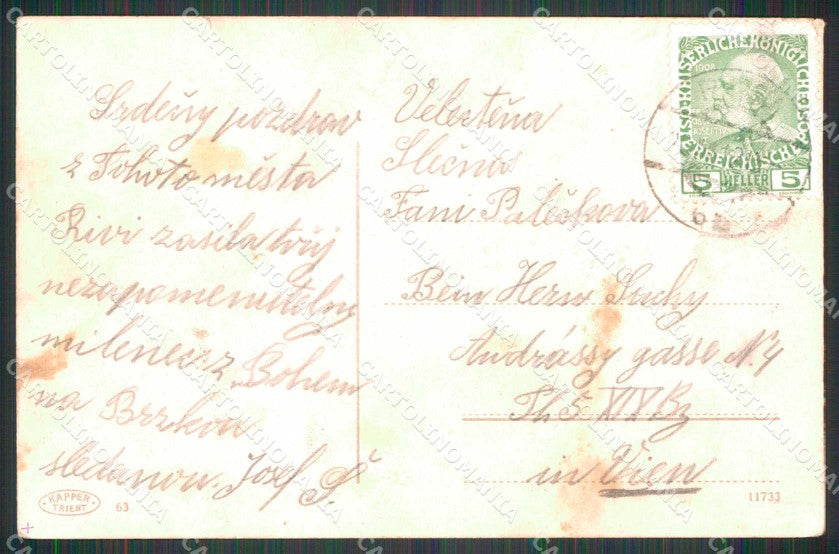 Srdečný pozdrav
z Tohoto města
Rivi zasila tvůj
nezapomenutelny
milenec z Bohem
na Brzkou
sledanou. Josef Š
KAPPER
TRIENT
63
Velectěna
Slečna
Fani Palečkova
Bein Herw Suchy
Andrássy gasse N. 4
Th 5 XIV Bz
in Vien
11733
KAISERLICHE KÖNIGLICHE
ÖSTERREICHISCHE
5 HELLER 5
CARTOLINOMANIA